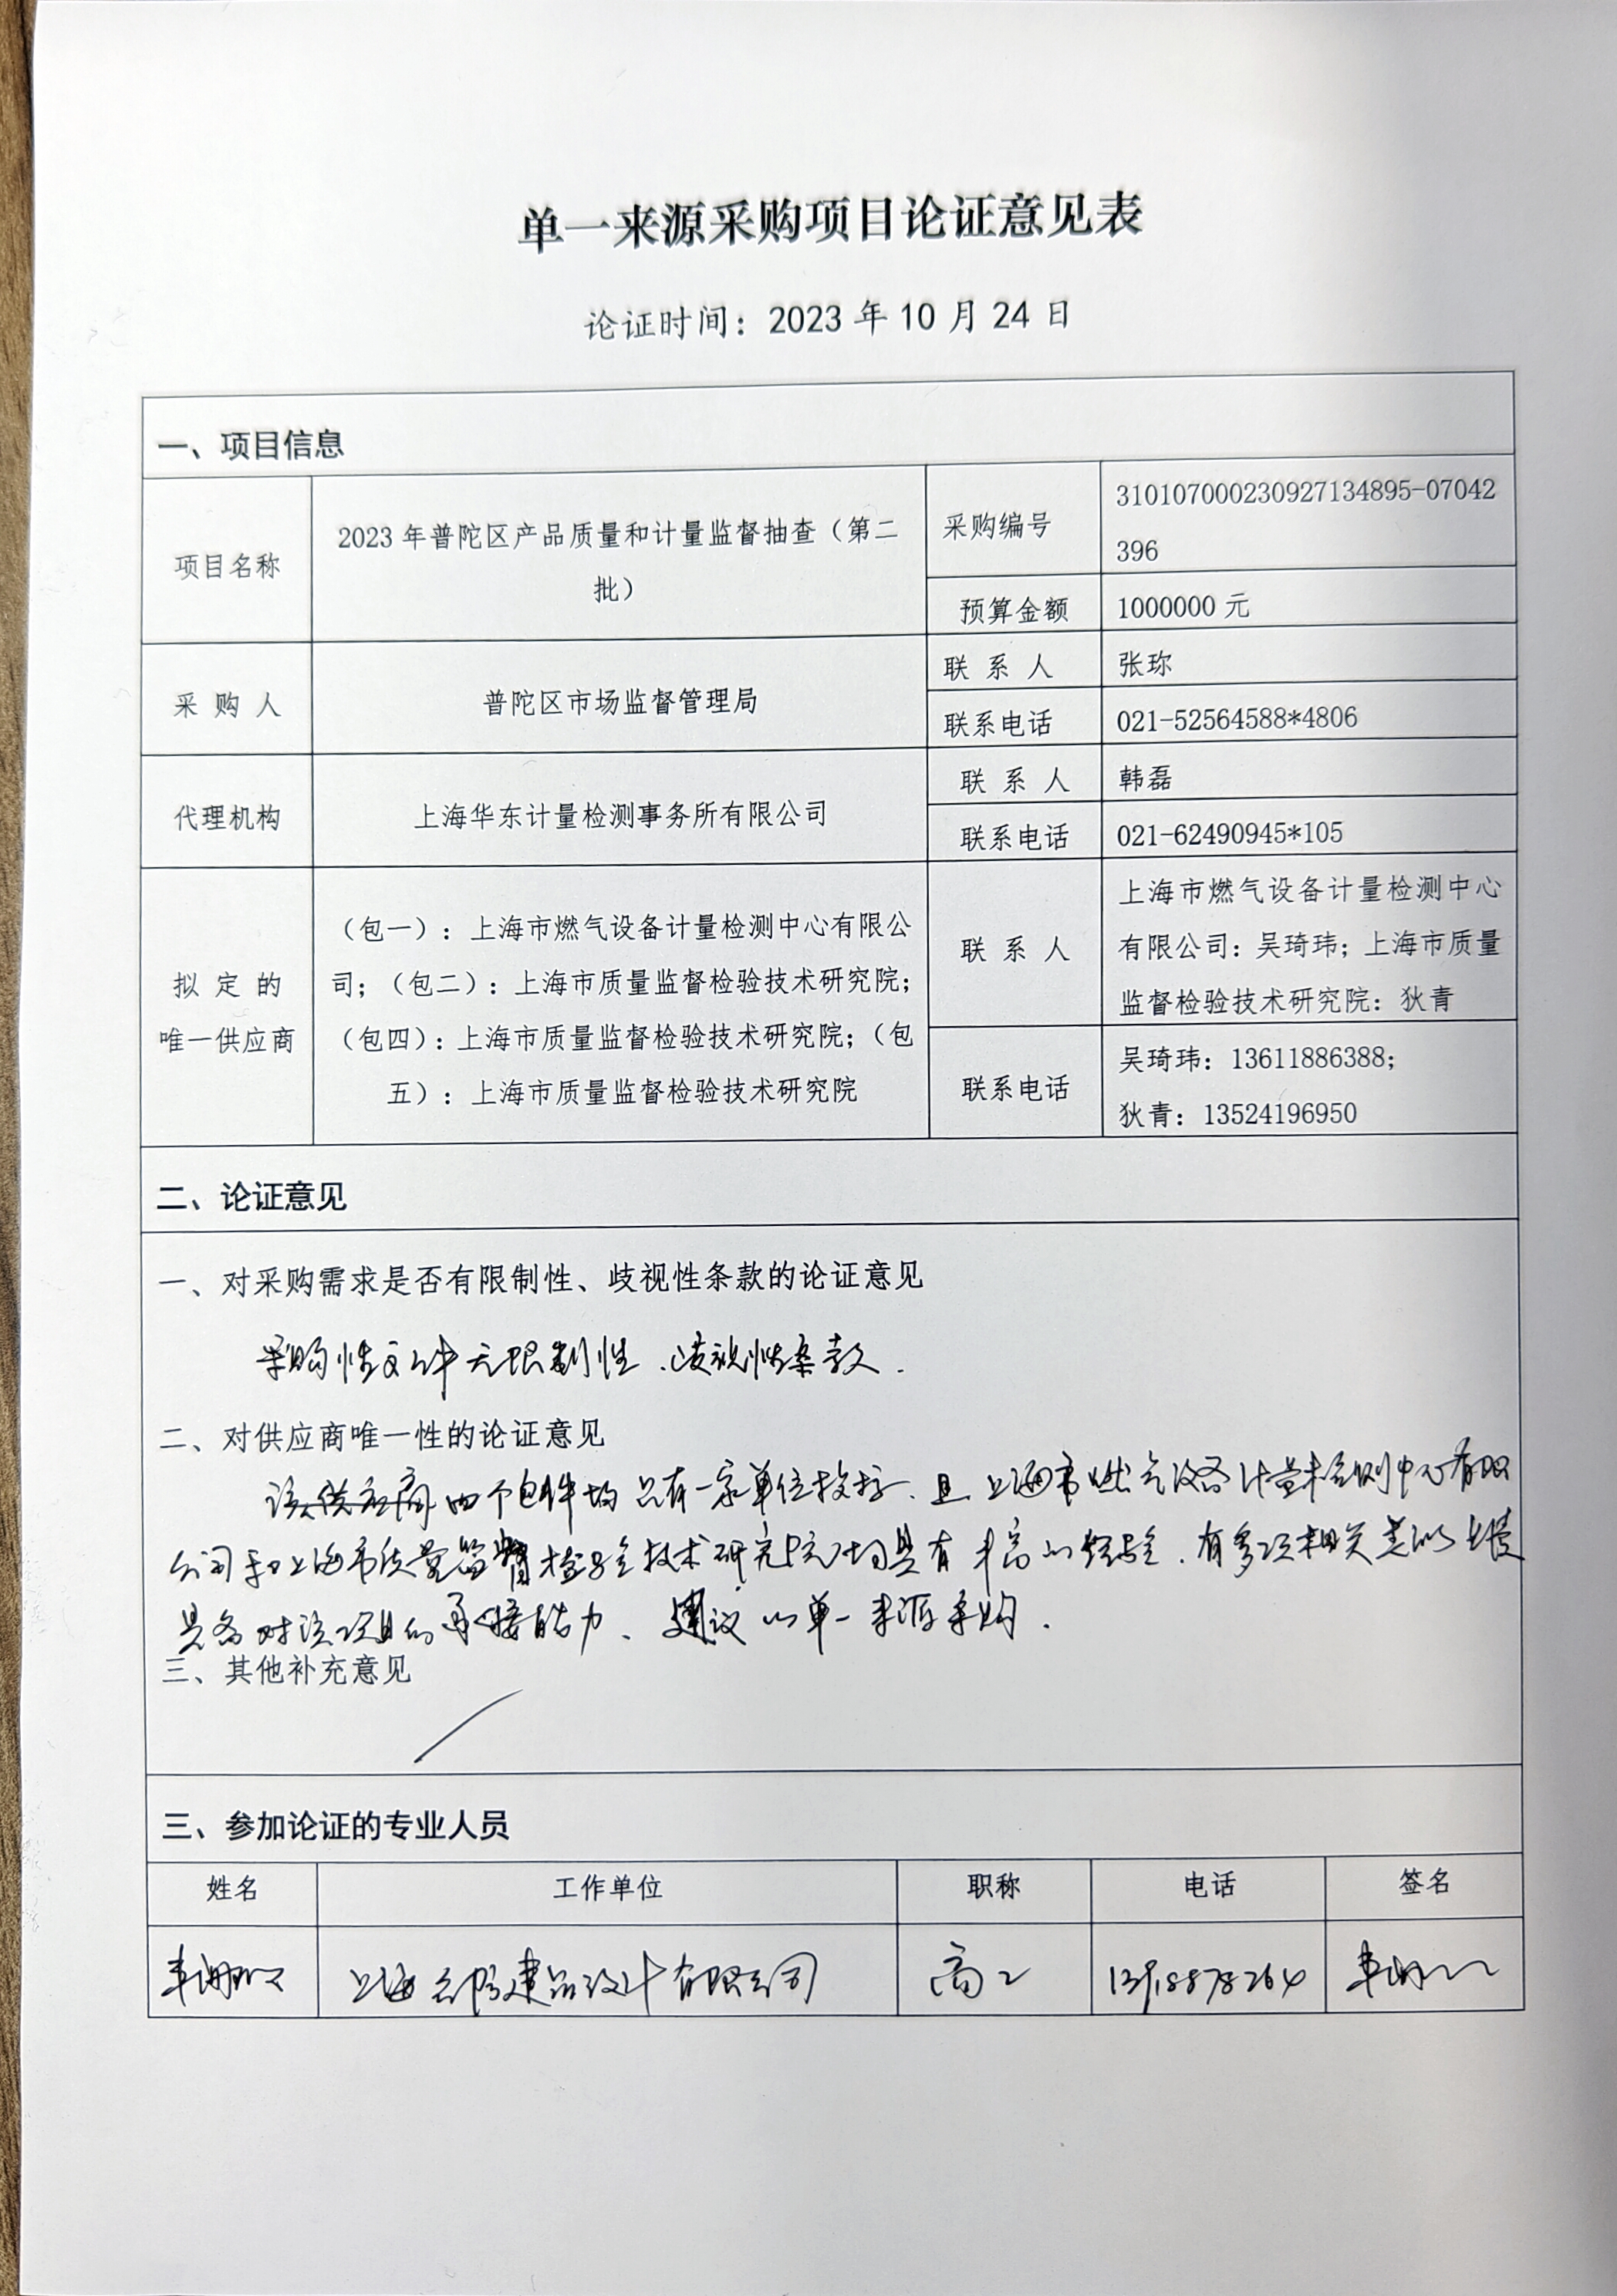 单一来源采购项目论证意见表
论证时间：2023 年 10 月 24 日
一、项目信息
项目名称
2023 年普陀区产品质量和计量监督抽查（第二
批）
采购编号
310107000230927134895-07042
396
预算金额
1000000 元
采 购 人
普陀区市场监督管理局
联 系 人
张珎
联系电话
021-52564588*4806
代理机构
上海华东计量检测事务所有限公司
联 系 人
韩磊
联系电话
021-62490945*105
拟 定 的
唯一供应商
（包一）：上海市燃气设备计量检测中心有限公
司；（包二）：上海市质量监督检验技术研究院；
（包四）：上海市质量监督检验技术研究院；（包
五）：上海市质量监督检验技术研究院
联 系 人
上海市燃气设备计量检测中心
有限公司：吴琦玮；上海市质量
监督检验技术研究院：狄青
联系电话
吴琦玮：13611886388；
狄青：13524196950
二、论证意见
一、对采购需求是否有限制性、歧视性条款的论证意见
采购性文件无限制性、歧视性条款.
二、对供应商唯一性的论证意见
该 四个包件均只有一家单位投标、且上海市燃气设备计量检测中心有限
公司和上海市质量监督检验技术研究院均具有丰富的经验、有多项相关类似业绩
具备对该项目的承接能力、建议以单一来源采购.
三、其他补充意见
三、参加论证的专业人员
姓名
工作单位
职称
电话
签名
上海 建筑设计有限公司
高工